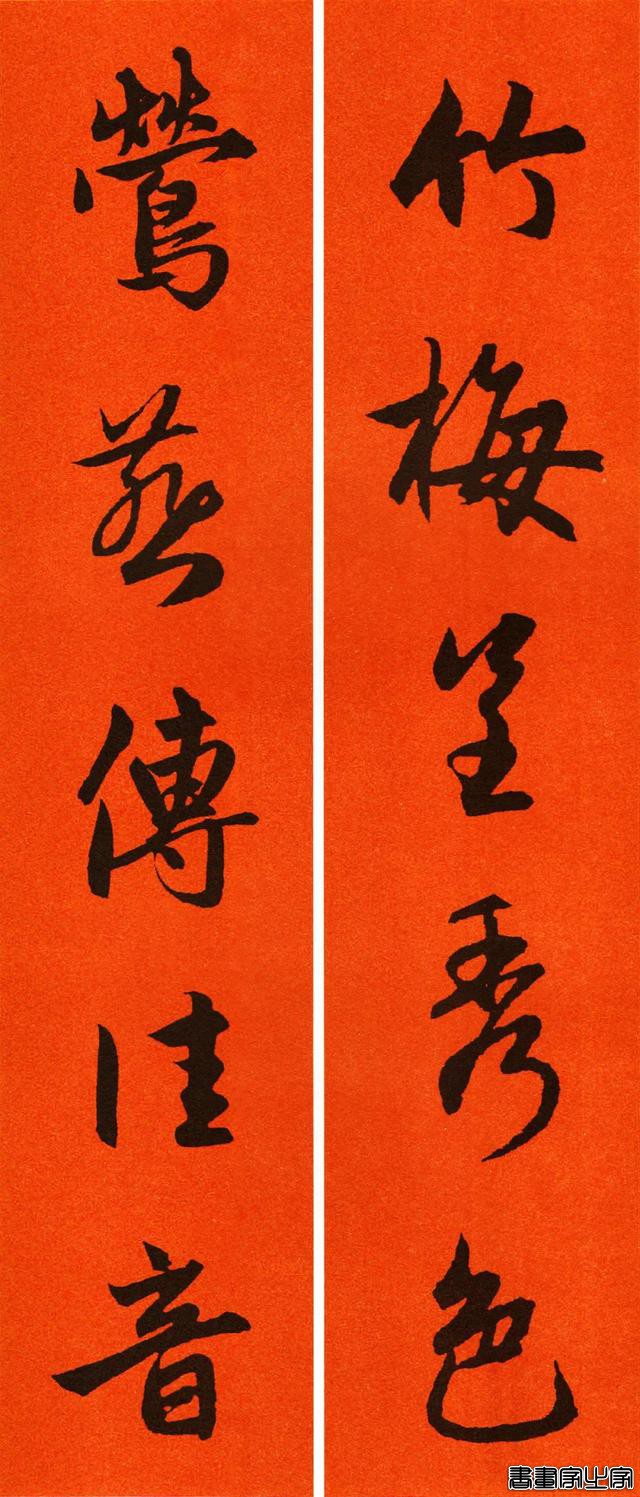 竹梅呈秀色
鶯燕傳佳音
書畫家之家